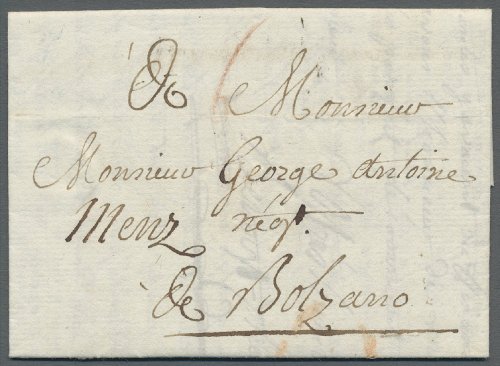 A Monsieur
Monsieur George Antoine
Menz négt.
de Bolzano